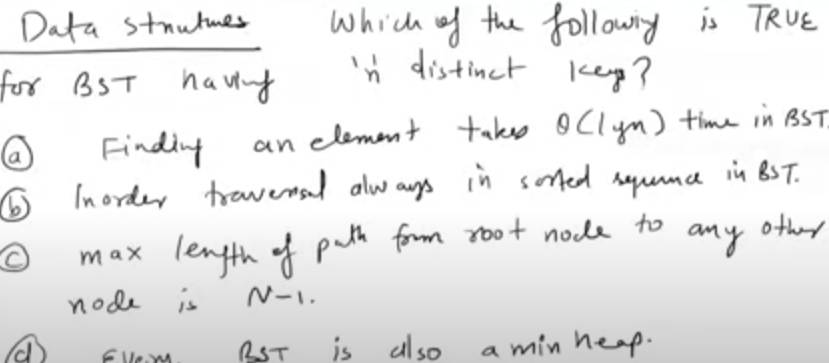 Data structures Which of the following is TRUE
for BST having 'n' distinct keys?
(a) Finding an element takes θ(lgn) time in BST.
(b) Inorder traversal always in sorted sequence in BST.
(c) max length of path from root node to any other
node is N-1.
(d) Every BST is also a min heap.